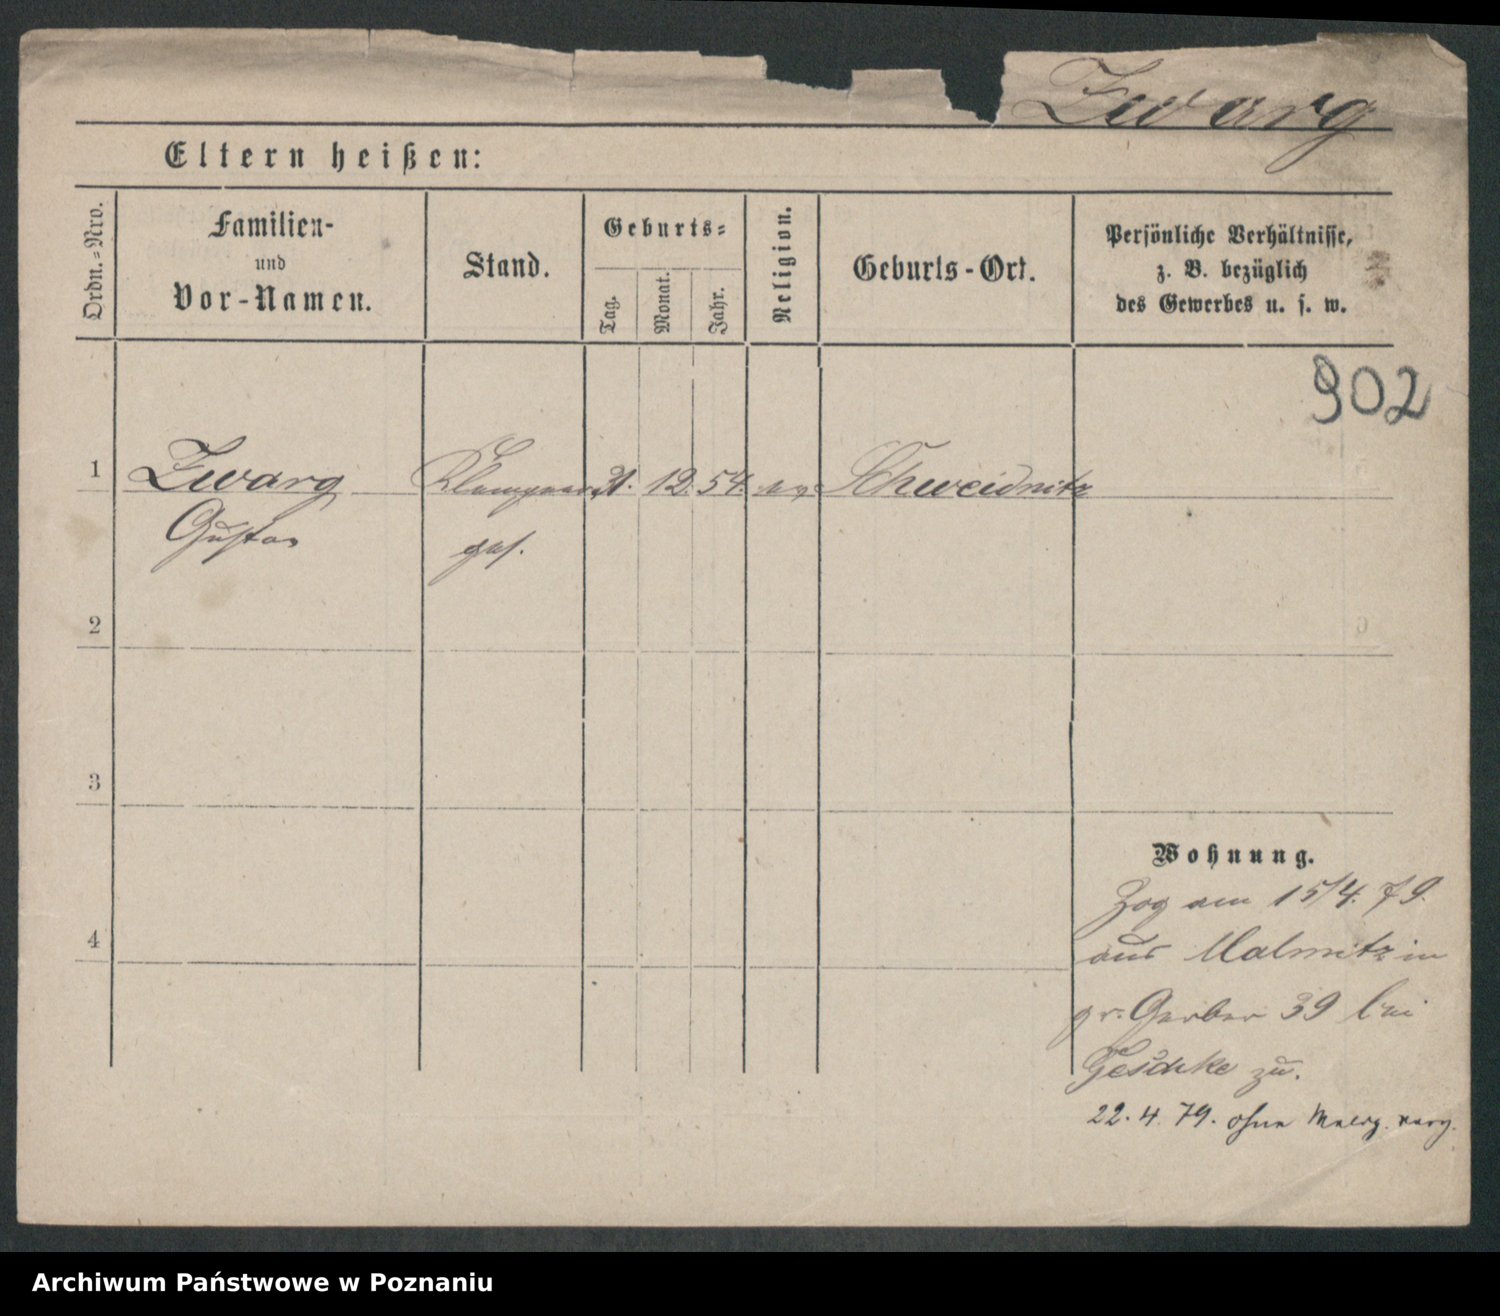 Zwarg
Eltern heißen:
Ordn.-Nro.
Familien-
und
Vor-Namen.
Stand.
Geburts-
Tag.
Monat.
Jahr.
Religion.
Geburts-Ort.
Persönliche Verhältnisse,
z. B. bezüglich
des Gewerbes u. s. w.
902
1 Zwarg Klempner 21. 12. 54. ev. Schweidnitz
Gustav ges.
2
3
Wohnung.
Zog am 15/4. 79.
4
aus Malmitz in
gr. Gerber 39 bei
Geschke zu.
22. 4. 79. ohne Meldg. verz.